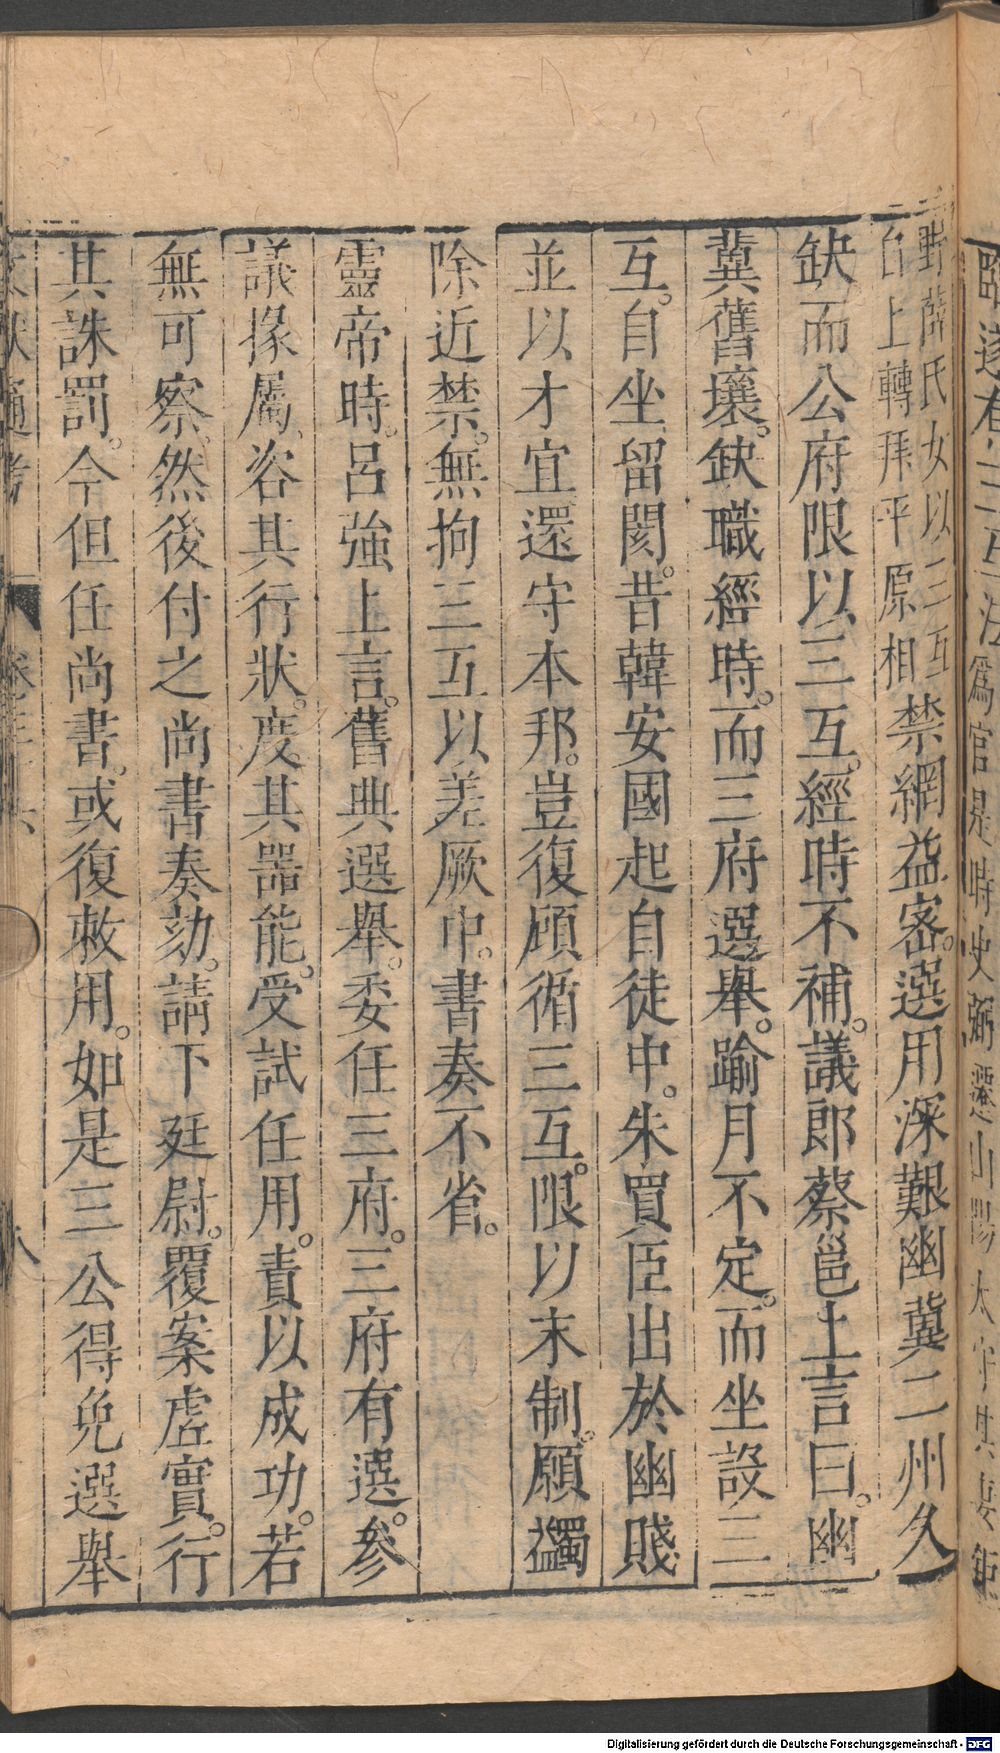 臨遂有三互法爲官是時史弼遷山陽太守其妻鉅
野薛氏女以三互
自上轉拜平原相
禁網益密。選用深艱幽冀二州久
缺而公府限以三互。經時不補。議郎蔡邕上言曰。幽
冀舊壤。缺職經時。而三府選舉。踰月不定。而坐設三
互。自坐留閡。昔韓安國起自徒中。朱買臣出於幽賤
並以才宜還守本邦。豈復顧循三互。限以末制。願蠲
除近禁。無拘三互以差厥中。書奏不省。
靈帝時。呂強上言。舊典選舉。委任三府。三府有選。參
議掾屬。咨其行狀。度其器能。受試任用。責以成功。若
無可察。然後付之尚書奏劾。請下廷尉。覆案虛實。行
其誅罰。今但任尚書。或復敕用。如是三公得免選舉
文獻通考 卷三十六 八
Digitalisierung gefördert durch die Deutsche Forschungsgemeinschaft - DFG